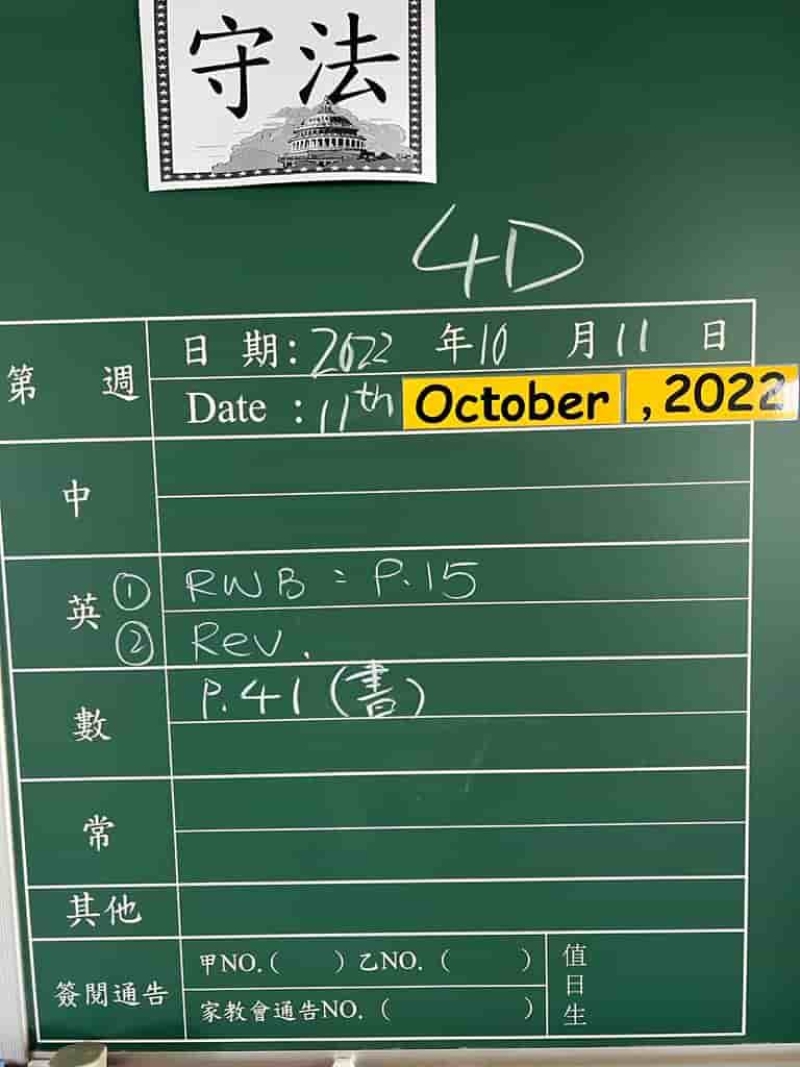 守法
4D
第 週
日 期: 2022 年 10 月 11 日
Date : 11th October , 2022
中
英 ① RWB : P.15
② Rev.
數 P.41 (書)
常
其他
簽閱通告 甲NO.( ) 乙NO. ( )
家教會通告NO. ( )
值日生